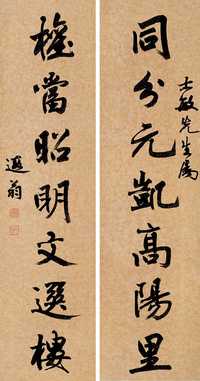 士敏先生屬
同分元凱高陽里
檐當昭明文選樓
遐翁